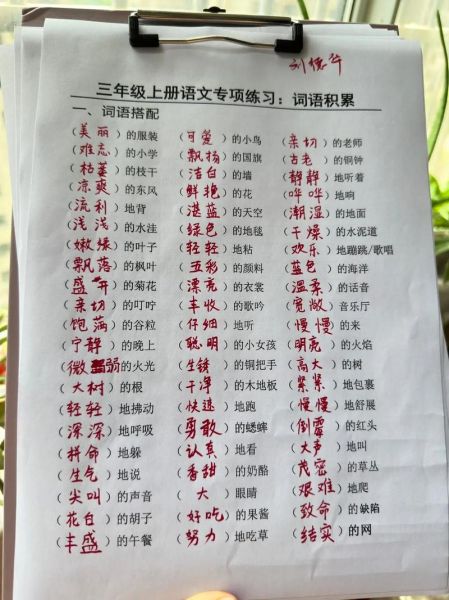 刘德午
三年级上册语文专项练习：词语积累
一、词语搭配
（美丽）的服装 （可爱）的小鸟 （亲切）的老师
（难忘）的小学 （飘扬）的国旗 （古老）的铜钟
（枯萎）的枝干 （洁白）的墙 （静静）地听着
（凉爽）的东风 （鲜艳）的花 （哗哗）地响
（流利）地背 （湛蓝）的天空 （潮湿）的地面
（浅浅）的水洼 （绿色）的地毯 （干燥）的水泥道
（嫩绿）的叶子 （轻轻）地粘 （欢乐）地蹦跳/歌唱
（飘落）的枫叶 （五彩）的颜料 （蓝色）的海洋
（盛开）的菊花 （漂亮）的衣裳 （温柔）的话音
（亲切）的叮咛 （丰收）的歌吟 （宽敞）音乐厅
（饱满）的谷粒 （仔细）地听 （慢慢）的来
（宁静）的晚上 （聪明）的小女孩 （明亮）的火焰
（微弱）的火光 （生锈）的铜把手 （高大）的树
（大树）的根 （干净）的木地板 （紧紧）地包裹
（轻轻）地拂动 （快速）地跑 （慢慢）地舒展
（深深）地呼吸 （勇敢）的蟋蟀 （倒霉）的红头
（拼命）地躲 （认真）地看 （大声）地叫
（生气）地说 （香甜）的奶酪 （茂密）的草丛
（尖叫）的声音 （大）眼睛 （艰难）地爬
（花白）的胡子 （好吃）的果酱 （致命）的缺陷
（丰盛）的午餐 （努力）地吃草 （结实）的网